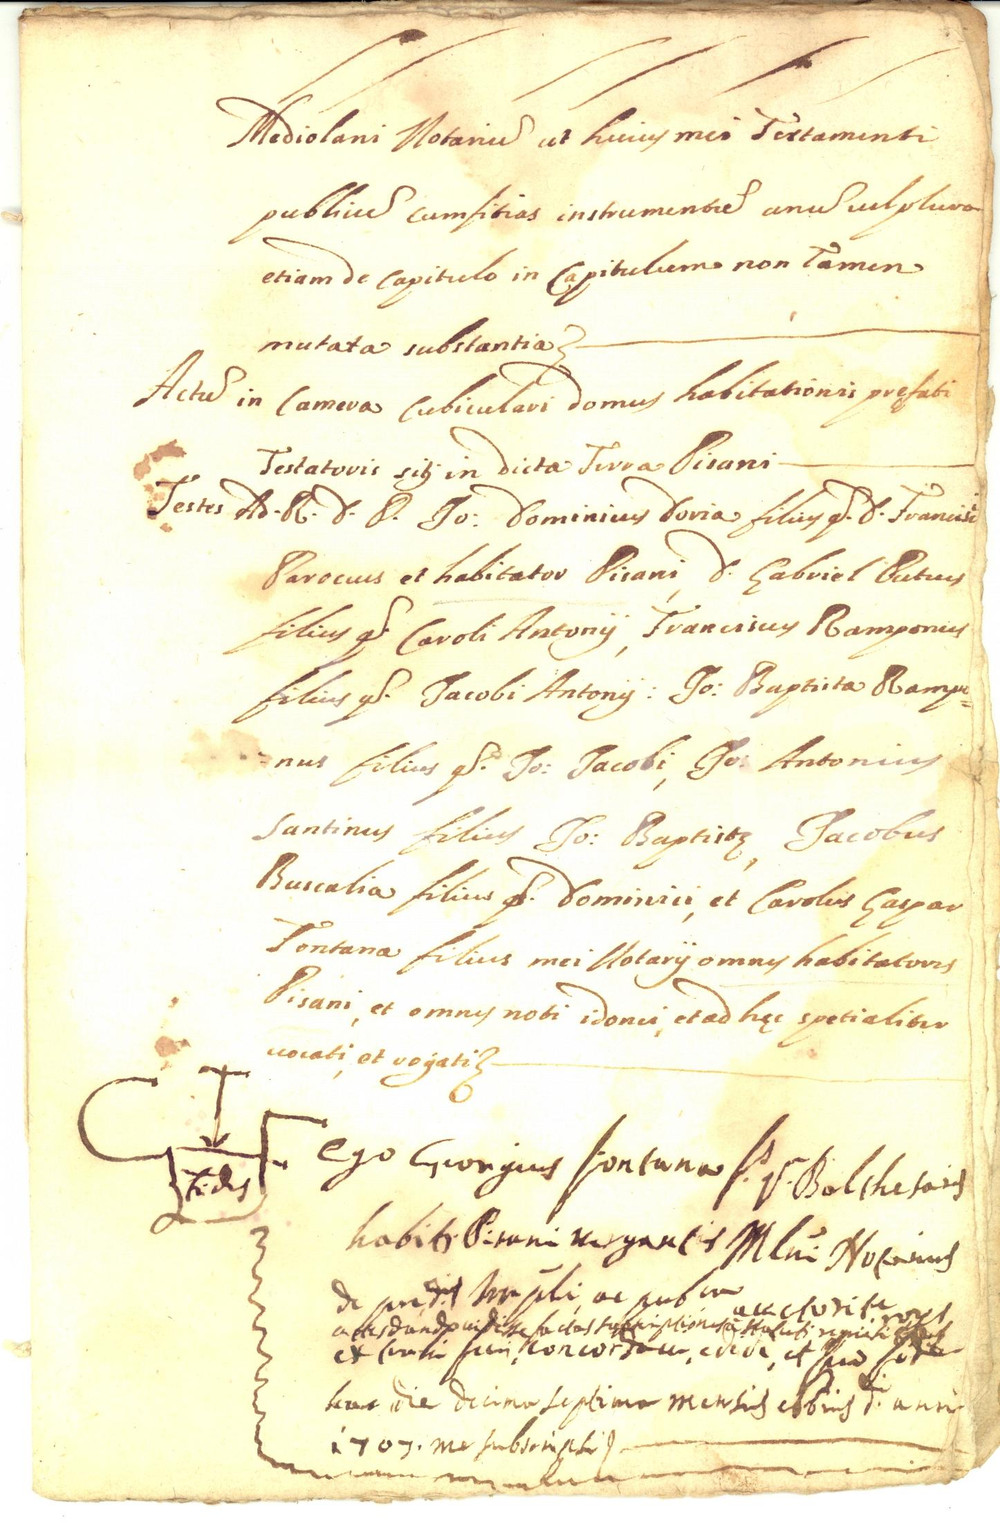 Mediolani Notariū ut huius mei Testamenti
publicū consitias instrumentū unū vel plura
etiam de capitulo in Capitulum non tamen
mutata substantia
Actū in Camera Cubiculari domus habitationis prefati
Testatoris sitę in dicta Terra Pisani
Testes Ad. R. d. P. Jo: Dominicus Doria filius q. d. Francisci
Parocus et habitator Pisani, d. Gabriel Putus
filius q. Caroli Antonij, Franciscus Ramponus
filius q. Jacobi Antonij: Jo: Baptista Rampo=
=nus filius q. Jo: Jacobi, Jo: Antonius
Santinus filius Jo: Baptistę, Jacobus
Buscalia filius q. Dominici, et Carolus Gaspar
Fontana filius mei Notarij omnes habitatores
Pisani, et omnes noti idonei, et ad hęc spetialiter
vocati, et rogati
Fides
Ego Georgius Fontana f. q. Balthesaris
habit. Pisani vergantis Mlni Notarius
de pred.
auctorite
et
hac die decima septima mensis d. anni
1707. me subscripsi